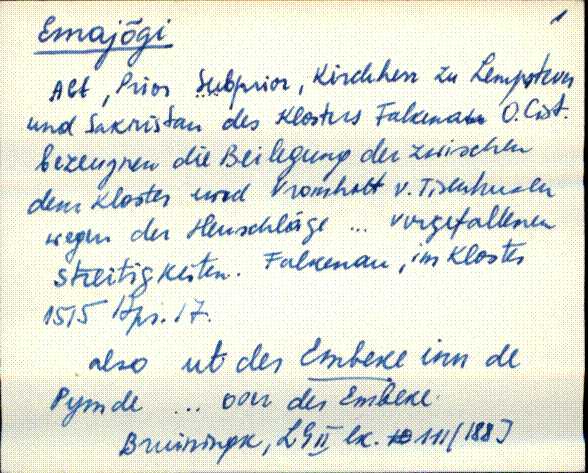 1
Emajõgi
Abt, Prior Subprior, Kirchherr zu
und Sakristan des Klosters Falkenau O. Cist.
bezeugen die Beilegung der zwischen
dem Kloster und Fromholt v. Tisenhusen
wegen der Heuschläge ... vorgefallenen
Streitigkeiten. Falkenau, im Kloster
1515 Apr. 17.
also ut der Embeke inn de
Pymde ... over der Embeke
Bruiningk, LG II lk. 111 (188)